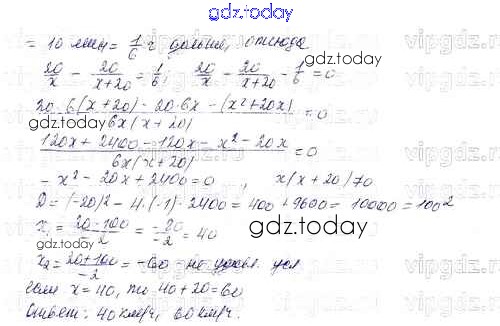 gdz.today
= 10 мин = 1/6 ч дольше, отсюда
gdz.today
20/x - 20/(x+20) = 1/6; 20/x - 20/(x+20) - 1/6 = 0
20·6(x+20) - 20·6x - (x²+20x) / 6x(x+20) = 0
gdz.today
120x + 2400 - 120x - x² - 20x / 6x(x+20) = 0
- x² - 20x + 2400 = 0, x(x+20)≠0
D = (-20)² - 4·(-1)·2400 = 400 + 9600 = 10000 = 100²
x₁ = 20-100/-2 = -80/-2 = 40
gdz.today
x₂ = 20+100/-2 = -60 - не удовл. усл
если x = 40, то 40 + 20 = 60
Ответ: 40 км/ч, 60 км/ч.
gdz.today